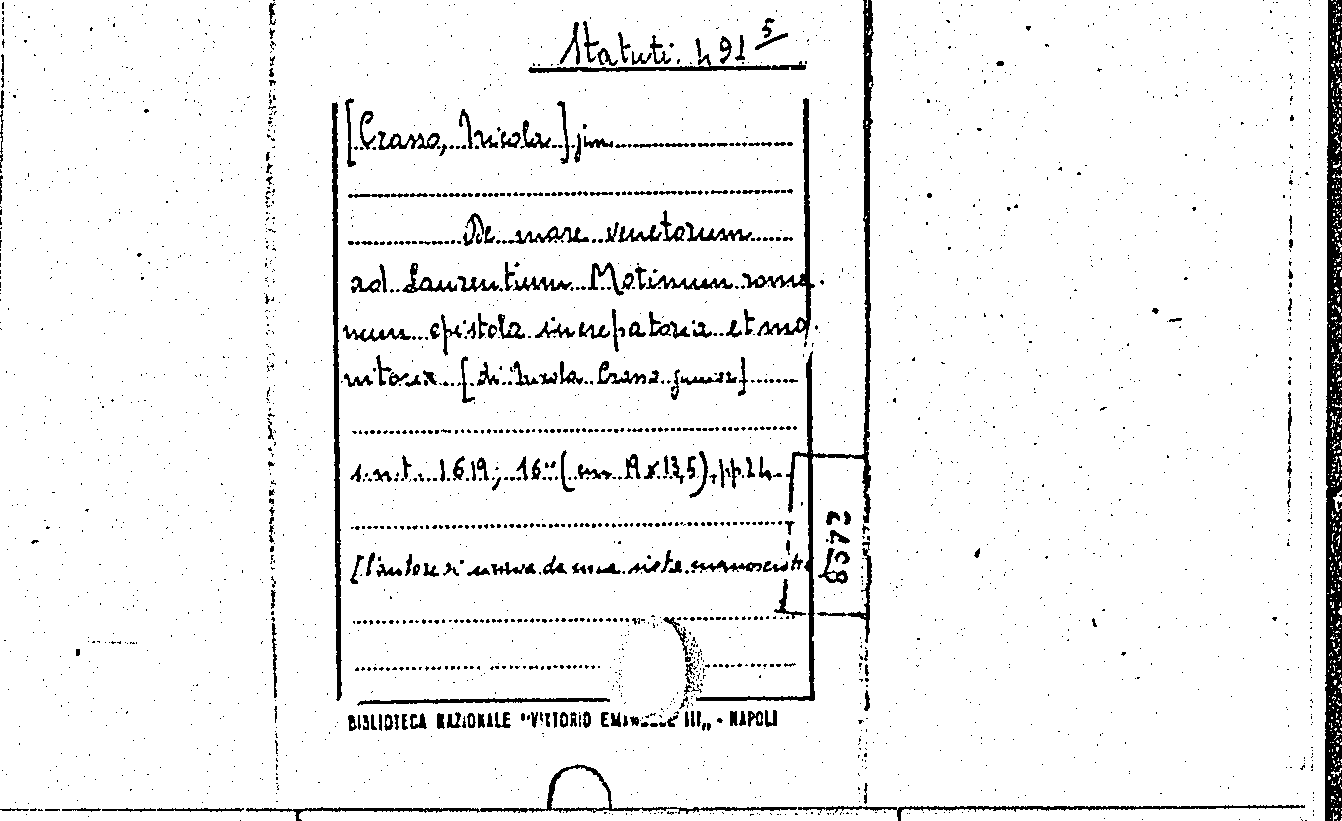 Statuti. 491 5
[Crasso, Nicola] jun.
De mare venetorum
ad Laurentium Motinum roma-
num epistola increpatoria et mo-
nitoria [di Nicola Crasso junior]
s.n.t. 1619; 16° (cm 19 x 13,5), pp. 24
[l'autore si ricava da una nota manoscritta
8572
BIBLIOTECA NAZIONALE "VITTORIO EMANUELE III" - NAPOLI